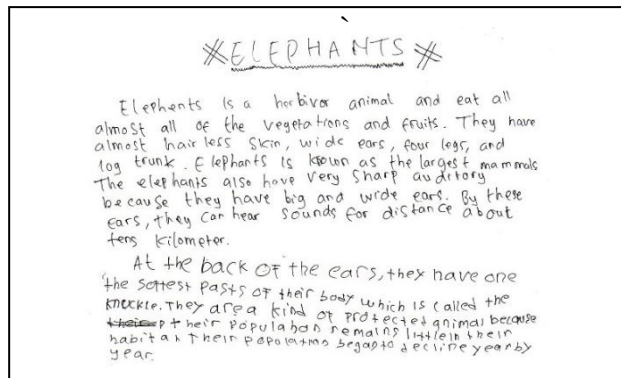 ELEPHANTS
Elephents is a herbivor animal and eat all
almost all of the vegetations and fruits. They have
almost hairless skin, wide ears, four legs, and
log trunk. Elephants is known as the largest mammals
The elephants also have very sharp auditory
because they have big and wide ears. By these
ears, they can hear sounds for distance about
tens kilometer.
At the back of the ears, they have one
the softest pasts of their body which is called the
knuckle. They are a kind of protected animal because
their population remains little in their
habitat Their population began to decline year by
year.